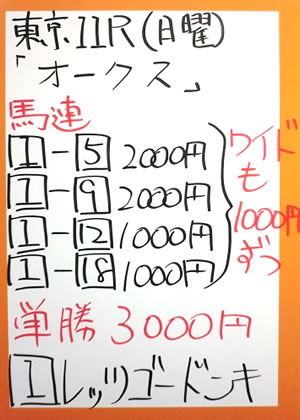 東京11R(日曜)
「オークス」
馬連
1-5 2000円
1-9 2000円
1-12 1000円
1-18 1000円
ワイド
も
1000円
ずつ
単勝3000円
1レッツゴードンキ